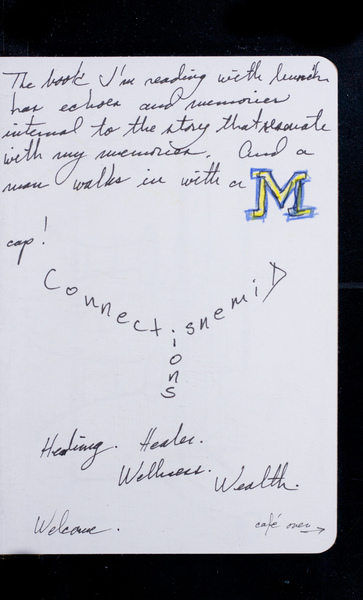 The book I'm reading with lunch
has echoes and memories
internal to the story that resonate
with my memories. And a
man walks in with a M
cap!
Connect.snemiD
ions
Healing. Healer.
Wellness.
Wealth.
Welcome.
café over →